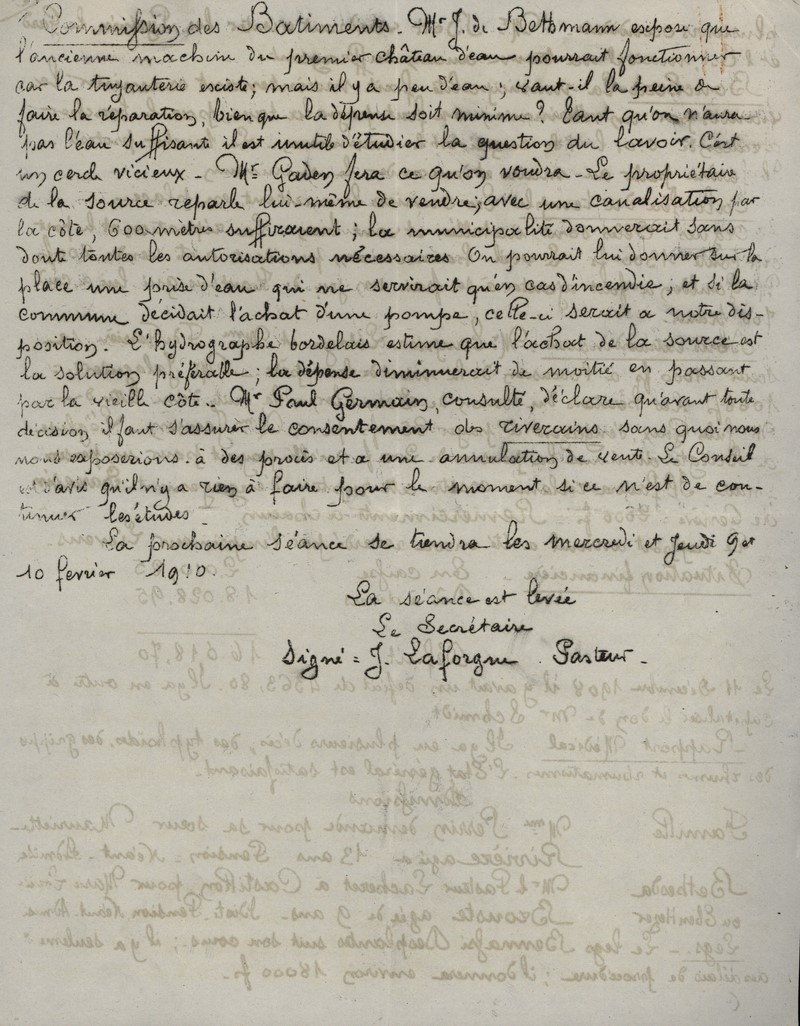 Commission des Batiments. Mr J. de Bethmann expose que
l'ancienne machine du premier château d'eau pourrait fonctionner
car la tuyauterie existe; mais il y a peu d'eau; vaut-il la peine de
faire la réparation, bien que la dépense soit minime? Tant qu'on n'aura
pas l'eau suffisante il est inutile d'étudier la question du lavoir. C'est
un cercle vicieux - Mr Gaden fera ce qu'on voudra - Le propriétaire
de la source reparle lui-même de vendre; avec une canalisation par
la côte, 600 mètres suffiraient; la municipalité donnerait sans
doute toutes les autorisations nécessaires On pourrait lui donner sur la
place une prise d'eau qui ne servirait qu'en cas d'incendie, et si la
commune décidait l'achat d'une pompe, celle-ci serait a notre dis-
position. L'hydrographe bordelais estime que l'achat de la source est
la solution préférable; la dépense diminuerait de moitié en passant
par la vieille côte. Mr Paul Germain, consulté, déclare qu'avant toute
décision il faut s'assurer le consentement des riverains sans quoi nous
nous exposerions à des procès et a une annulation de vente. Le Conseil
est d'avis qu'il n'y a rien à faire pour le moment si ce n'est de con-
tinuer les études -
La prochaine séance se tiendra les mercredi et jeudi 9 et
10 fevrier 1910.
La séance est levée
Le Secrétaire
Signé = J. Laforgue. Pasteur -